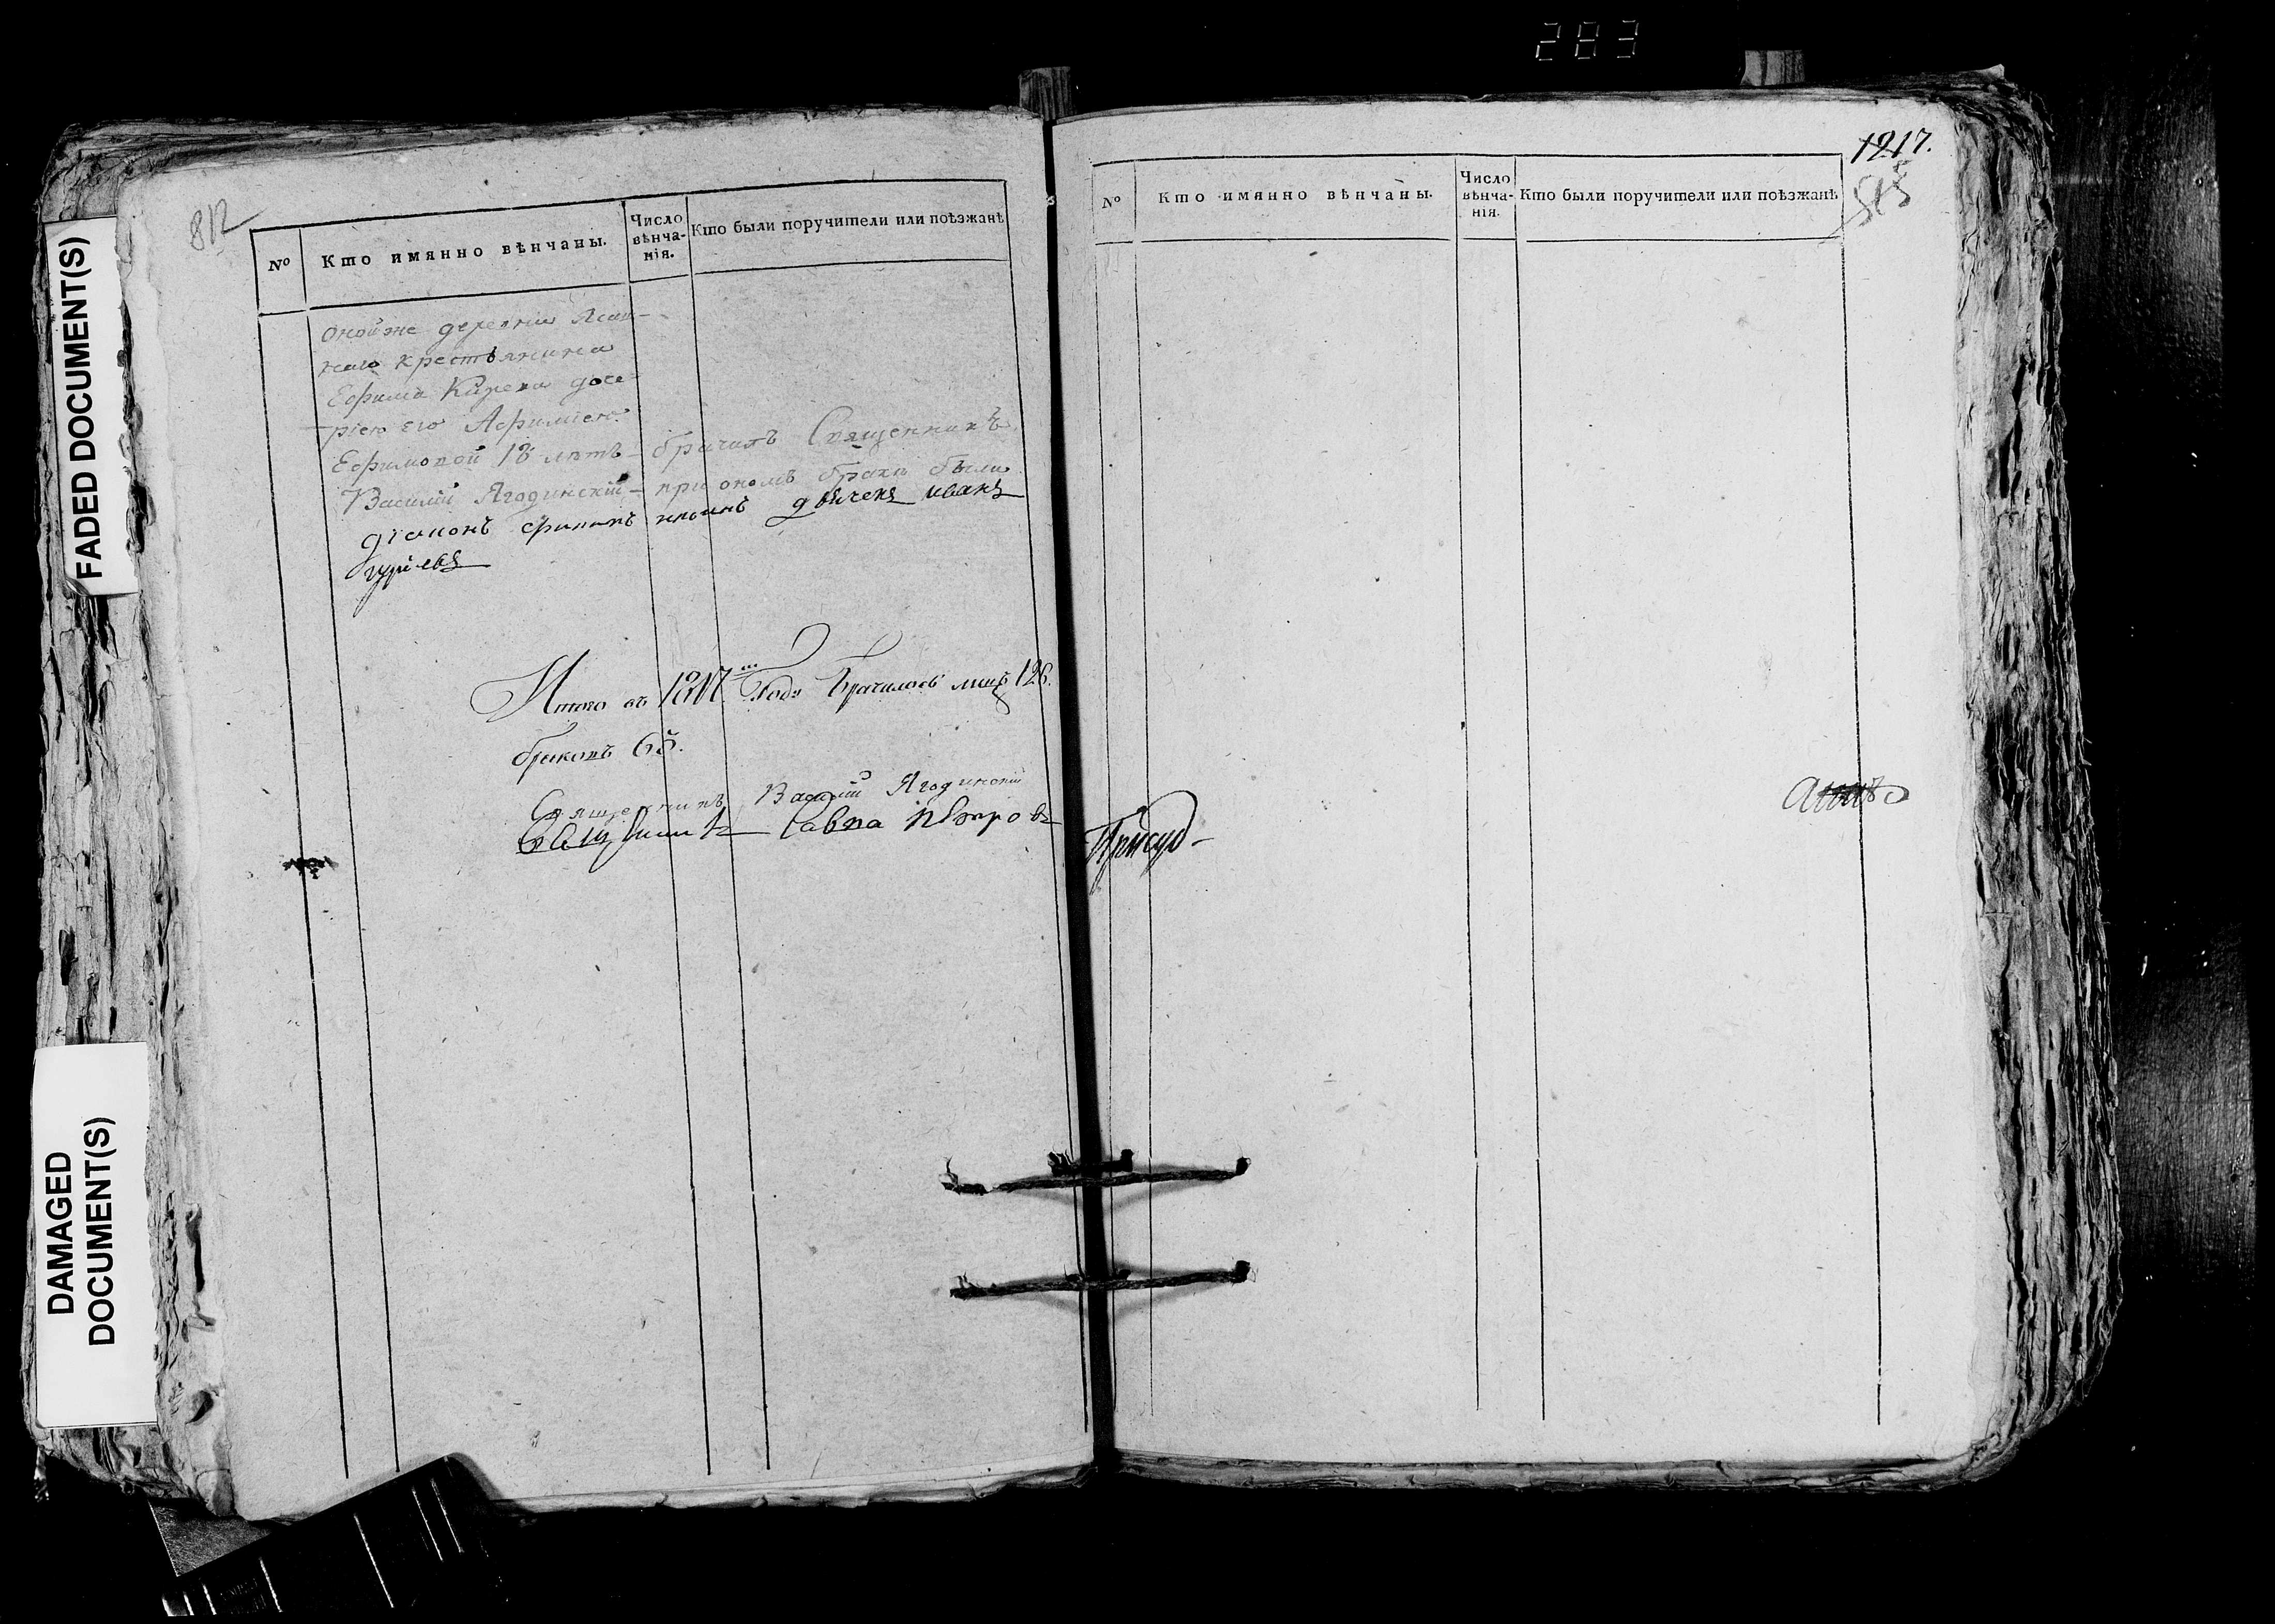 283
FADED DOCUMENT(S)
DAMAGED
DOCUMENT(S)
812
№ Кто имянно вѣнчаны. Число вѣнча-нія. Кто были поручители или поѣзжанѣ
оной же деревни
наго крестьянина
Ефима дсче-
рію его
Ефимовой 18 лѣтъ – брачилъ Священникъ
Василій Ягодинскій – при ономъ бракѣ были
діаконъ дьячекъ иванъ
гуріевъ
Итого въ 1817 Годъ Брачилось лицъ
браковъ
Священникъ Василій Ягодинскій
Священникъ Савва пѣтровъ
1217.
№ Кто имянно вѣнчаны. Число вѣнча-нія. Кто были поручители или поѣзжанѣ
Присуд-